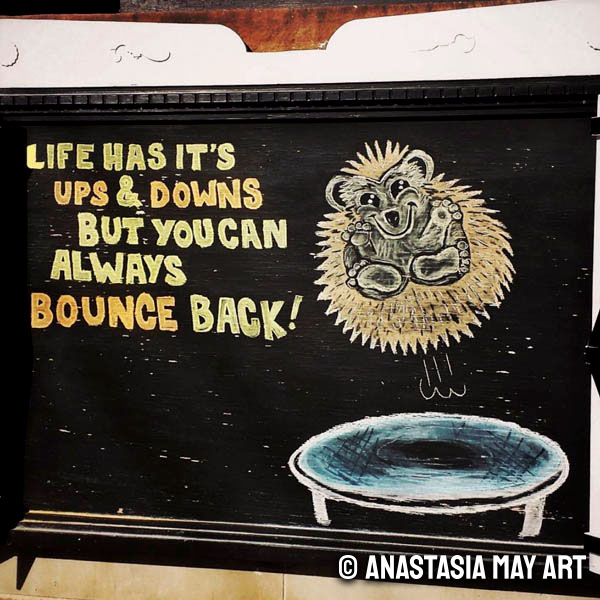 LIFE HAS IT'S
UPS & DOWNS
BUT YOU CAN
ALWAYS
BOUNCE BACK!
© ANASTASIA MAY ART